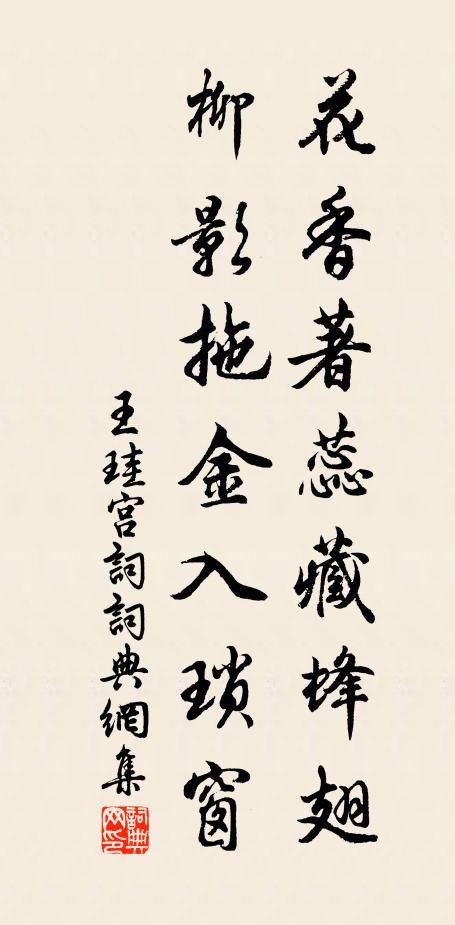 花香著蕊藏蜂翅
柳影拖金入瑣窗
王珪宮詞詞典網集
詞典網印